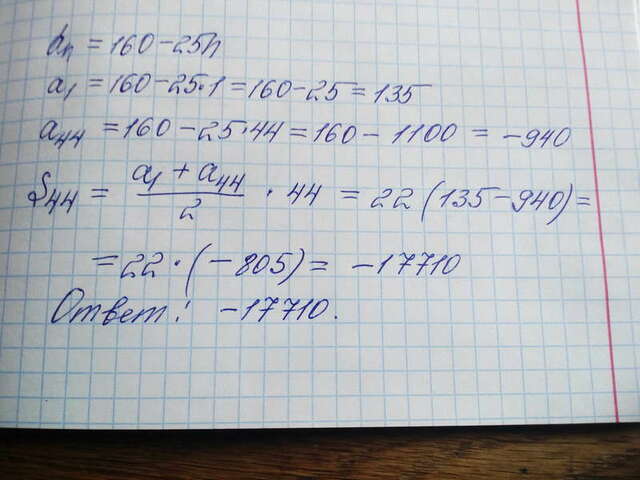 dn = 160-25n
a₁ = 160-25·1 = 160-25 = 135
a₄₄ = 160-25·44 = 160-1100 = -940
S₄₄ = (a₁ + a₄₄)/2 · 44 = 22(135-940) =
= 22·(-805) = -17710
Ответ: -17710.